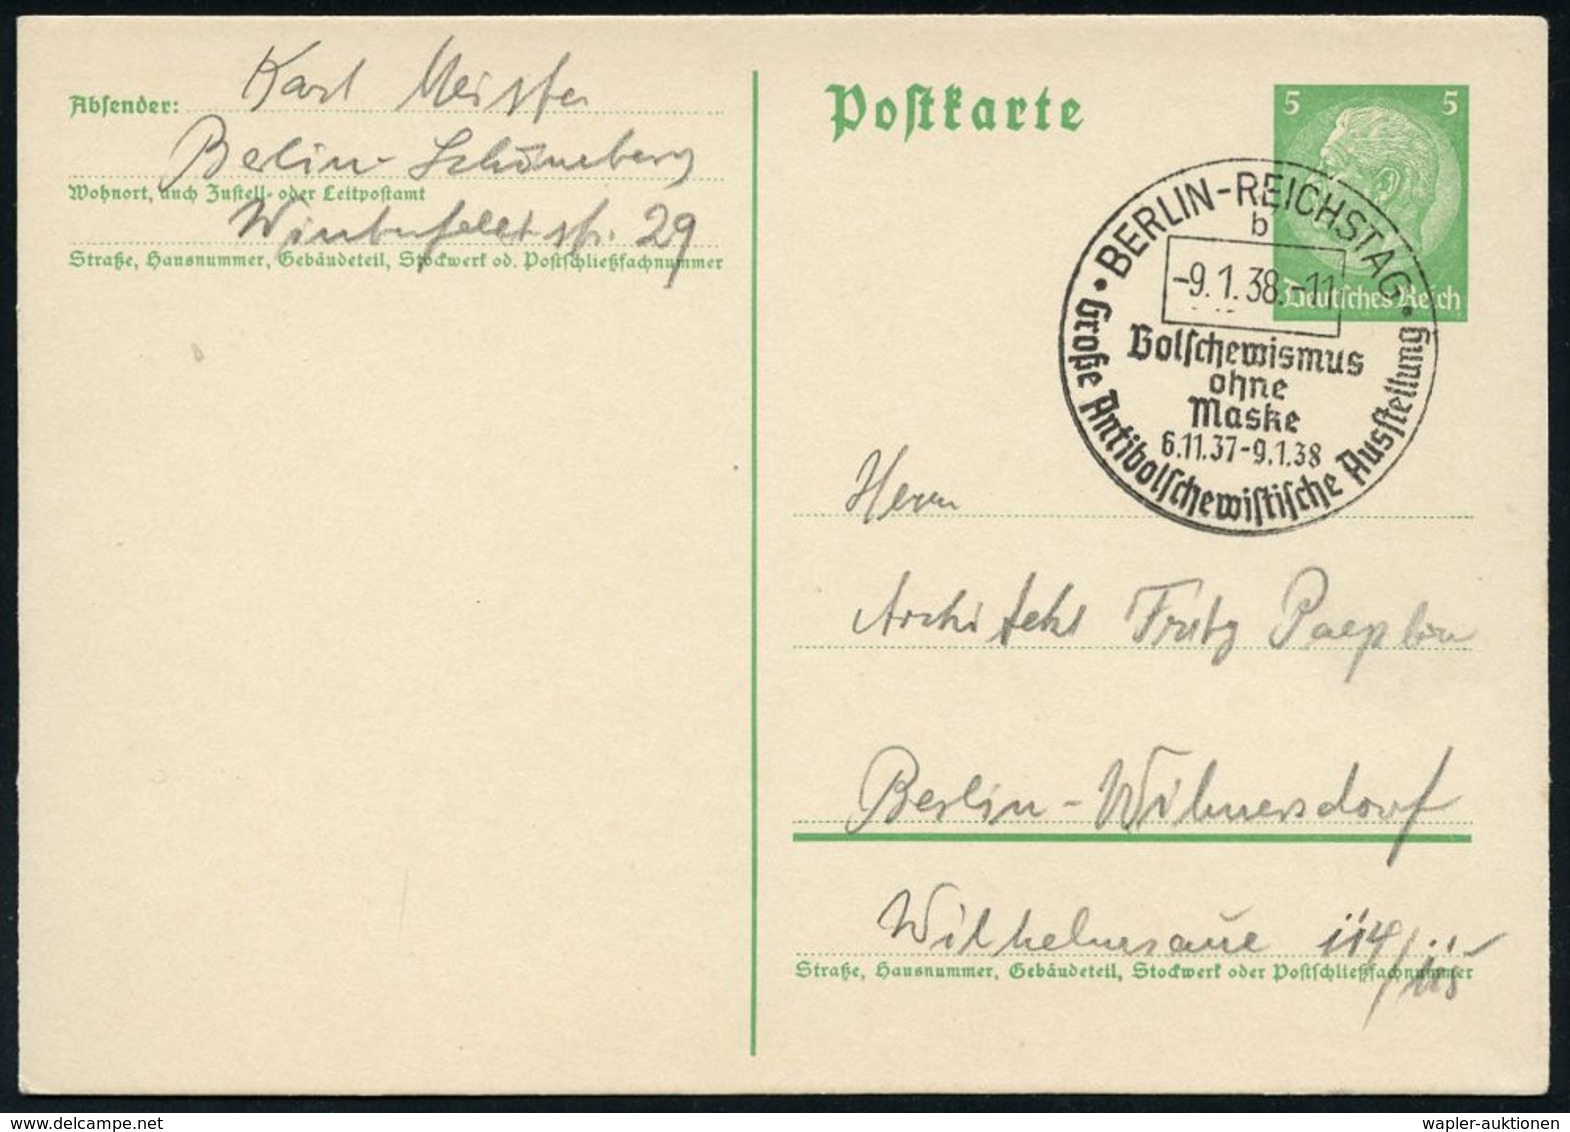 Absender: Karl Meister
Berlin Schöneberg
Wohnort, auch Zustell- oder Leitpostamt
Winterfeldtstr. 29
Straße, Hausnummer, Gebäudeteil, Stockwerk od. Postschließfachnummer
Postkarte
5 5
Deutsches Reich
BERLIN-REICHSTAG
b
-9.1.38.-11
Bolschewismus
ohne
Maske
6.11.37-9.1.38
Große Antibolschewistische Ausstellung
Herrn
Architekt Fritz
Berlin-Wilmersdorf
Wilhelmsaue 114/
Straße, Hausnummer, Gebäudeteil, Stockwerk oder Postschließfachnummer
wapler-auktionen